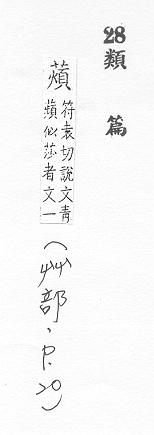 28類篇
薠
符袁切說文青
薠似莎者文一
(艸部,P.20)